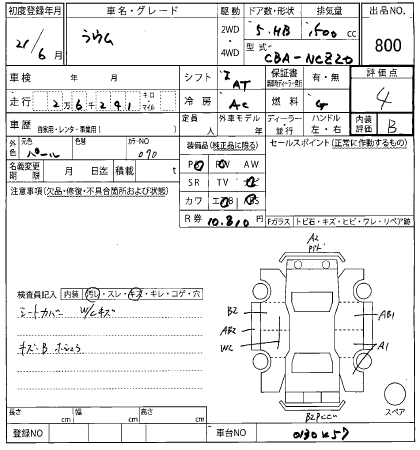 初度登録年月 車名・グレード 駆動 ドア数・形状 排気量 出品NO.
21/6月 ラウム 2WD 5.HB 1500 cc 800
4WD 型式 CBA-NCZ20
車検 年 月 シフト I AT 保証書 有・無 評価点
走行 2万6千241 キロ マイル 冷房 AC 燃料 G 4
車歴 自家用・レンタ・事業用( ) 定員 人 外車モデル 年 ディーラー・並行 ハンドル 左・右 内装評価 B
外色 元色 パール 色替 カラーNO 070 装備品(純正品に限る) セールスポイント(正常に作動するもの)
名義変更期限 月 日迄 積載 t PS PW AW
注意事項(欠品・修復・不具合箇所および状態) SR TV ナビ
カワ エアB ABS
R券 10.810 Fガラス トビ石・キズ・ヒビ・ワレ・リペア跡
A2
検査員記入 内装 汚れ・スレ・キズ・キレ・コゲ・穴
シートカバー W/Cキズ
B2 AB1
AB2
WC A1
キズ・B
スペア
長さ cm 幅 cm 高さ cm
登録NO 車台NO 0130457